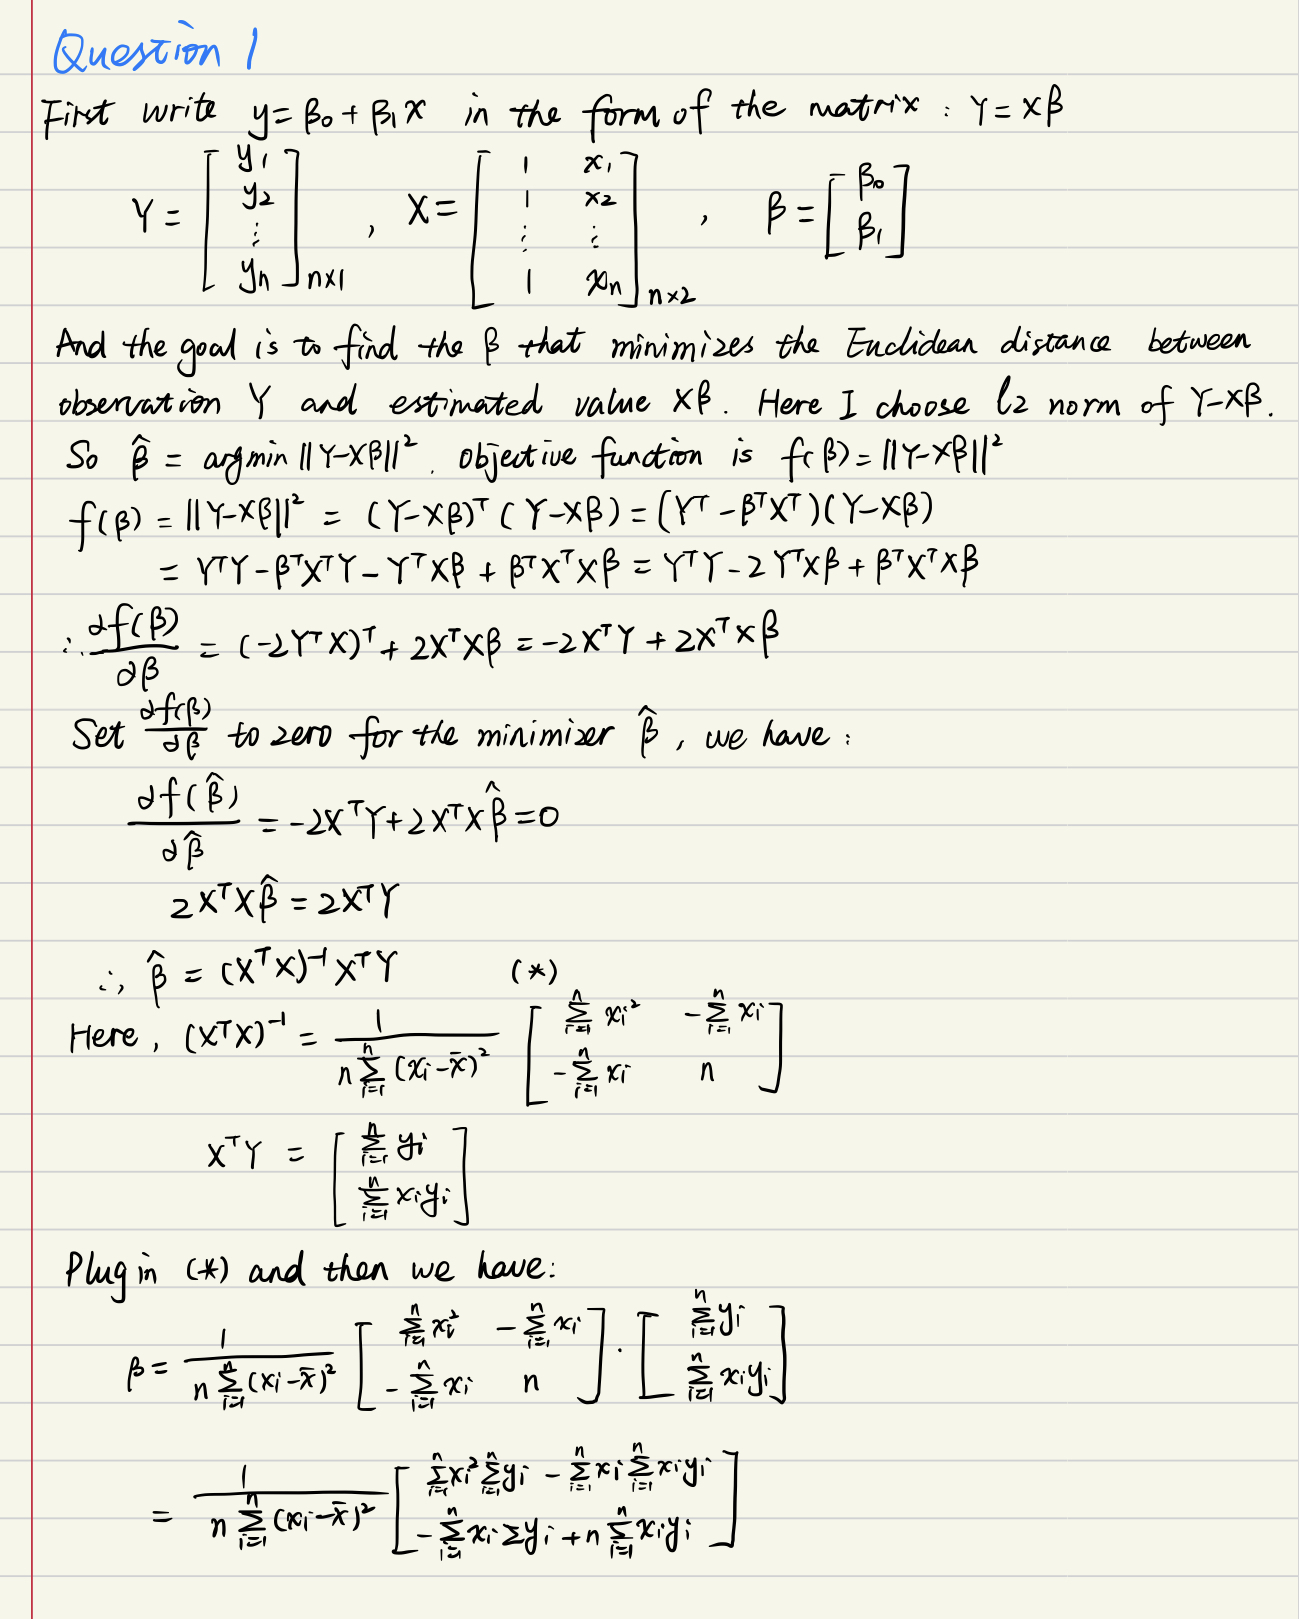 Question 1
First write y = β₀ + β₁x in the form of the matrix : Y = Xβ
Y = [y₁ y₂ ⋮ yₙ]ₙₓ₁ , X = [1 x₁ 1 x₂ ⋮ ⋮ 1 xₙ]ₙₓ₂ , β = [β₀ β₁]
And the goal is to find the β that minimizes the Euclidean distance between
observation Y and estimated value Xβ. Here I choose l2 norm of Y-Xβ.
So β̂ = argmin ||Y-Xβ||². objective function is f(β) = ||Y-Xβ||²
f(β) = ||Y-Xβ||² = (Y-Xβ)ᵀ(Y-Xβ) = (Yᵀ - βᵀXᵀ)(Y-Xβ)
= YᵀY - βᵀXᵀY - YᵀXβ + βᵀXᵀXβ = YᵀY - 2YᵀXβ + βᵀXᵀXβ
∴ ∂f(β)/∂β = (-2YᵀX)ᵀ + 2XᵀXβ = -2XᵀY + 2XᵀXβ
Set ∂f(β)/∂β to zero for the minimizer β̂, we have :
∂f(β̂)/∂β̂ = -2XᵀY + 2XᵀXβ̂ = 0
2XᵀXβ̂ = 2XᵀY
∴, β̂ = (XᵀX)⁻¹XᵀY (*)
Here, (XᵀX)⁻¹ = 1/(n∑ᵢ₌₁ⁿ(xᵢ-x̄)²) [∑ᵢ₌₁ⁿxᵢ² -∑ᵢ₌₁ⁿxᵢ -∑ᵢ₌₁ⁿxᵢ n]
XᵀY = [∑ᵢ₌₁ⁿyᵢ ∑ᵢ₌₁ⁿxᵢyᵢ]
Plug in (*) and then we have:
β = 1/(n∑ᵢ₌₁ⁿ(xᵢ-x̄)²) [∑ᵢ₌₁ⁿxᵢ² -∑ᵢ₌₁ⁿxᵢ -∑ᵢ₌₁ⁿxᵢ n] · [∑ᵢ₌₁ⁿyᵢ ∑ᵢ₌₁ⁿxᵢyᵢ]
= 1/(n∑ᵢ₌₁ⁿ(xᵢ-x̄)²) [∑ᵢ₌₁ⁿxᵢ²∑ᵢ₌₁ⁿyᵢ - ∑ᵢ₌₁ⁿxᵢ∑ᵢ₌₁ⁿxᵢyᵢ -∑ᵢ₌₁ⁿxᵢ∑yᵢ + n∑ᵢ₌₁ⁿxᵢyᵢ]